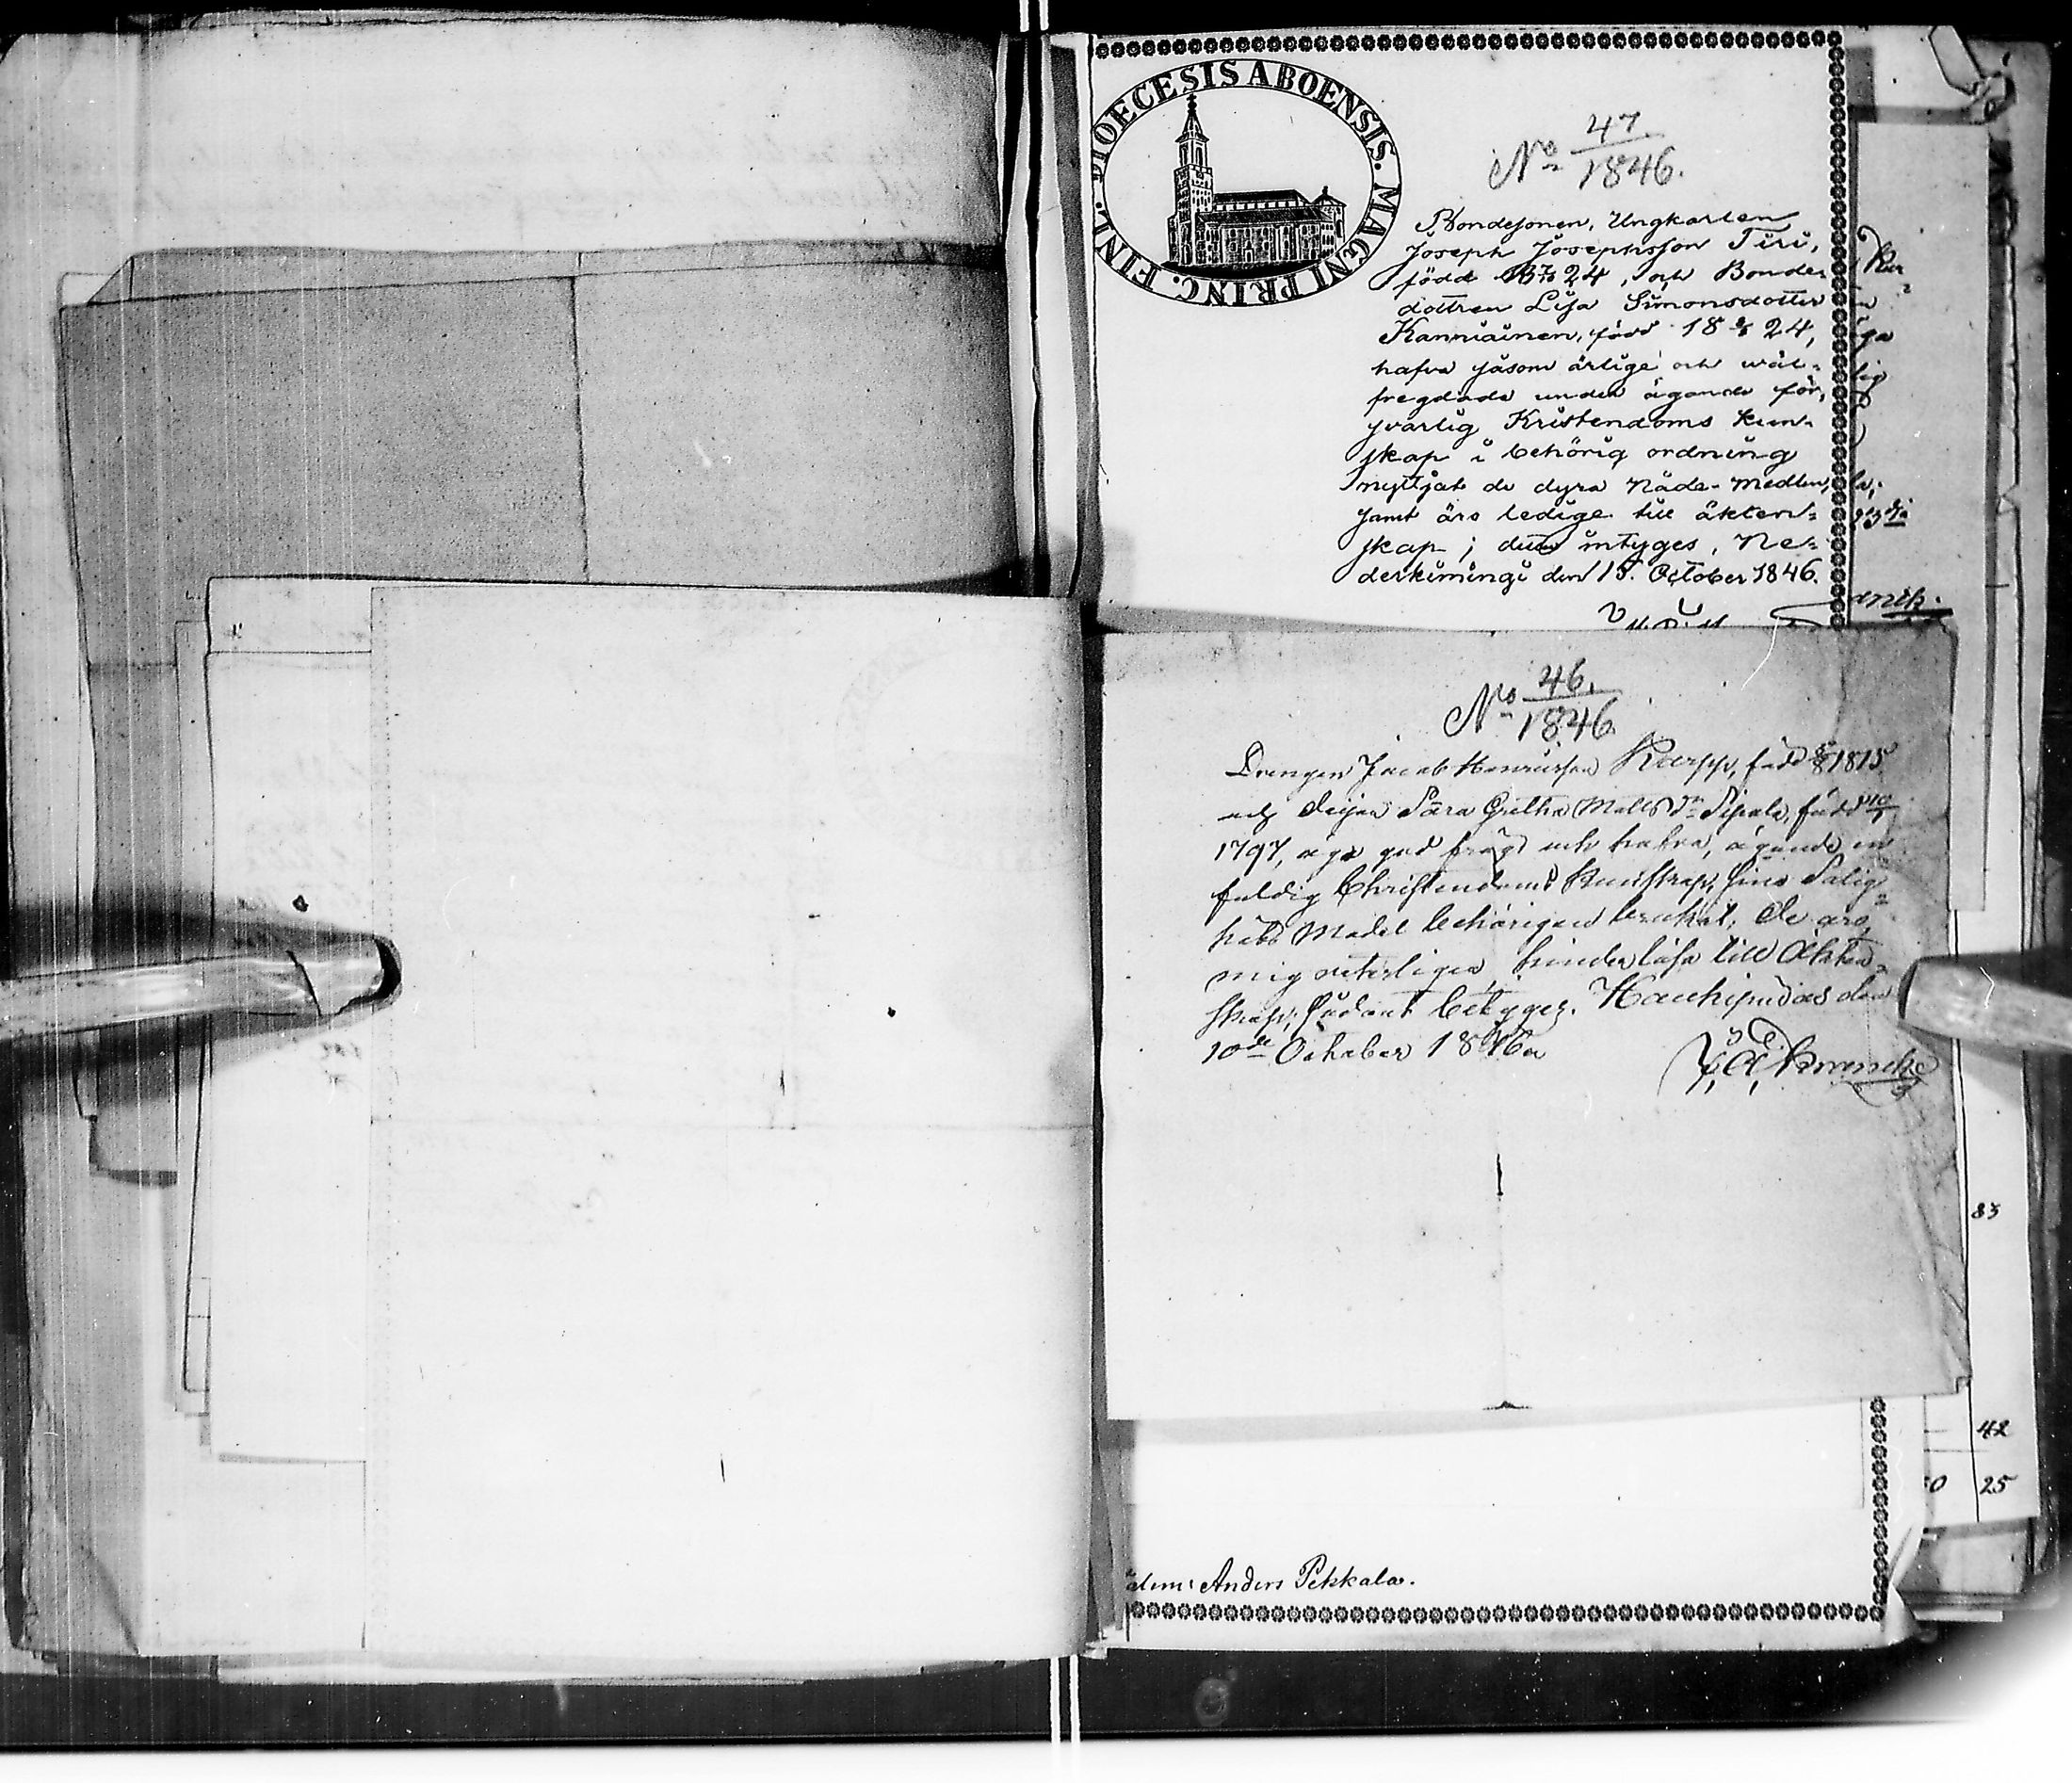 DIOECESIS ABOENSIS. MAGNI PRINC. FINL.
No 47
1846.
Bondesonen, Ungkarlen
Joseph Josephsson Tiri,
född 24, och Bonde
dottren Lisa Simonsdotter
Kanniainen, född 18 24,
hafva såsom ärlige och wäl-
fregdade under ägande för,
svarlig Kristendoms kun-
skap i behörig ordning
nyttjat de dyra Nåde-Medlen,
samt äro ledige till äkten-
skap; det intyges, Ne-
derkimingi den 15. October 1846.
No 46.
1846
Drengen Jacob Henricsson Karppi, född 1815
och Pigan Sara Gretha Matts Dr Sipala, född
1797, äga god frägd och hafva, ägande en
fuldig Christendoms Kunskap, sina Salig-
hets Medel behörigen brukat. De äro,
mig veterligen, hinderlösa till Äkten-
skap; sådant betyges. Haukipudas den
10de October 1846
dem: Anders Pekkala.
83
42
25